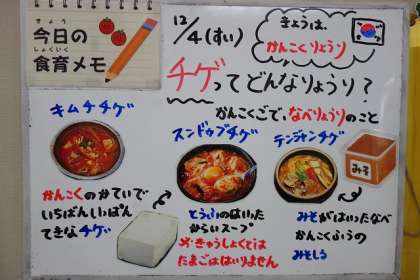 きょう
今日の
しょくいく
食育メモ
12/4(すい)
きょうは、
かんこくりょうり
チゲってどんなりょうり？
かんこくごで、なべりょうりのこと
キムチチゲ
かんこくのかていで
いちばんいっぱん
てきなチゲ
スンドゥブチゲ
とうふのはいった
からいスープ
※きゅうしょくでは
たまごははいりません
テンジャンチゲ
みそ
みそがはいったなべ
かんこくふうの
みそしる